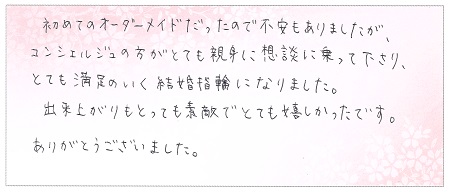 初めてのオーダーメイドだったので不安もありましたが、
コンシェルジュの方がとても親身に想談に乗って下さり、
とても満足のいく結婚指輪になりました。
出来上がりもとっても素敵でとても嬉しかったです。
ありがとうございました。